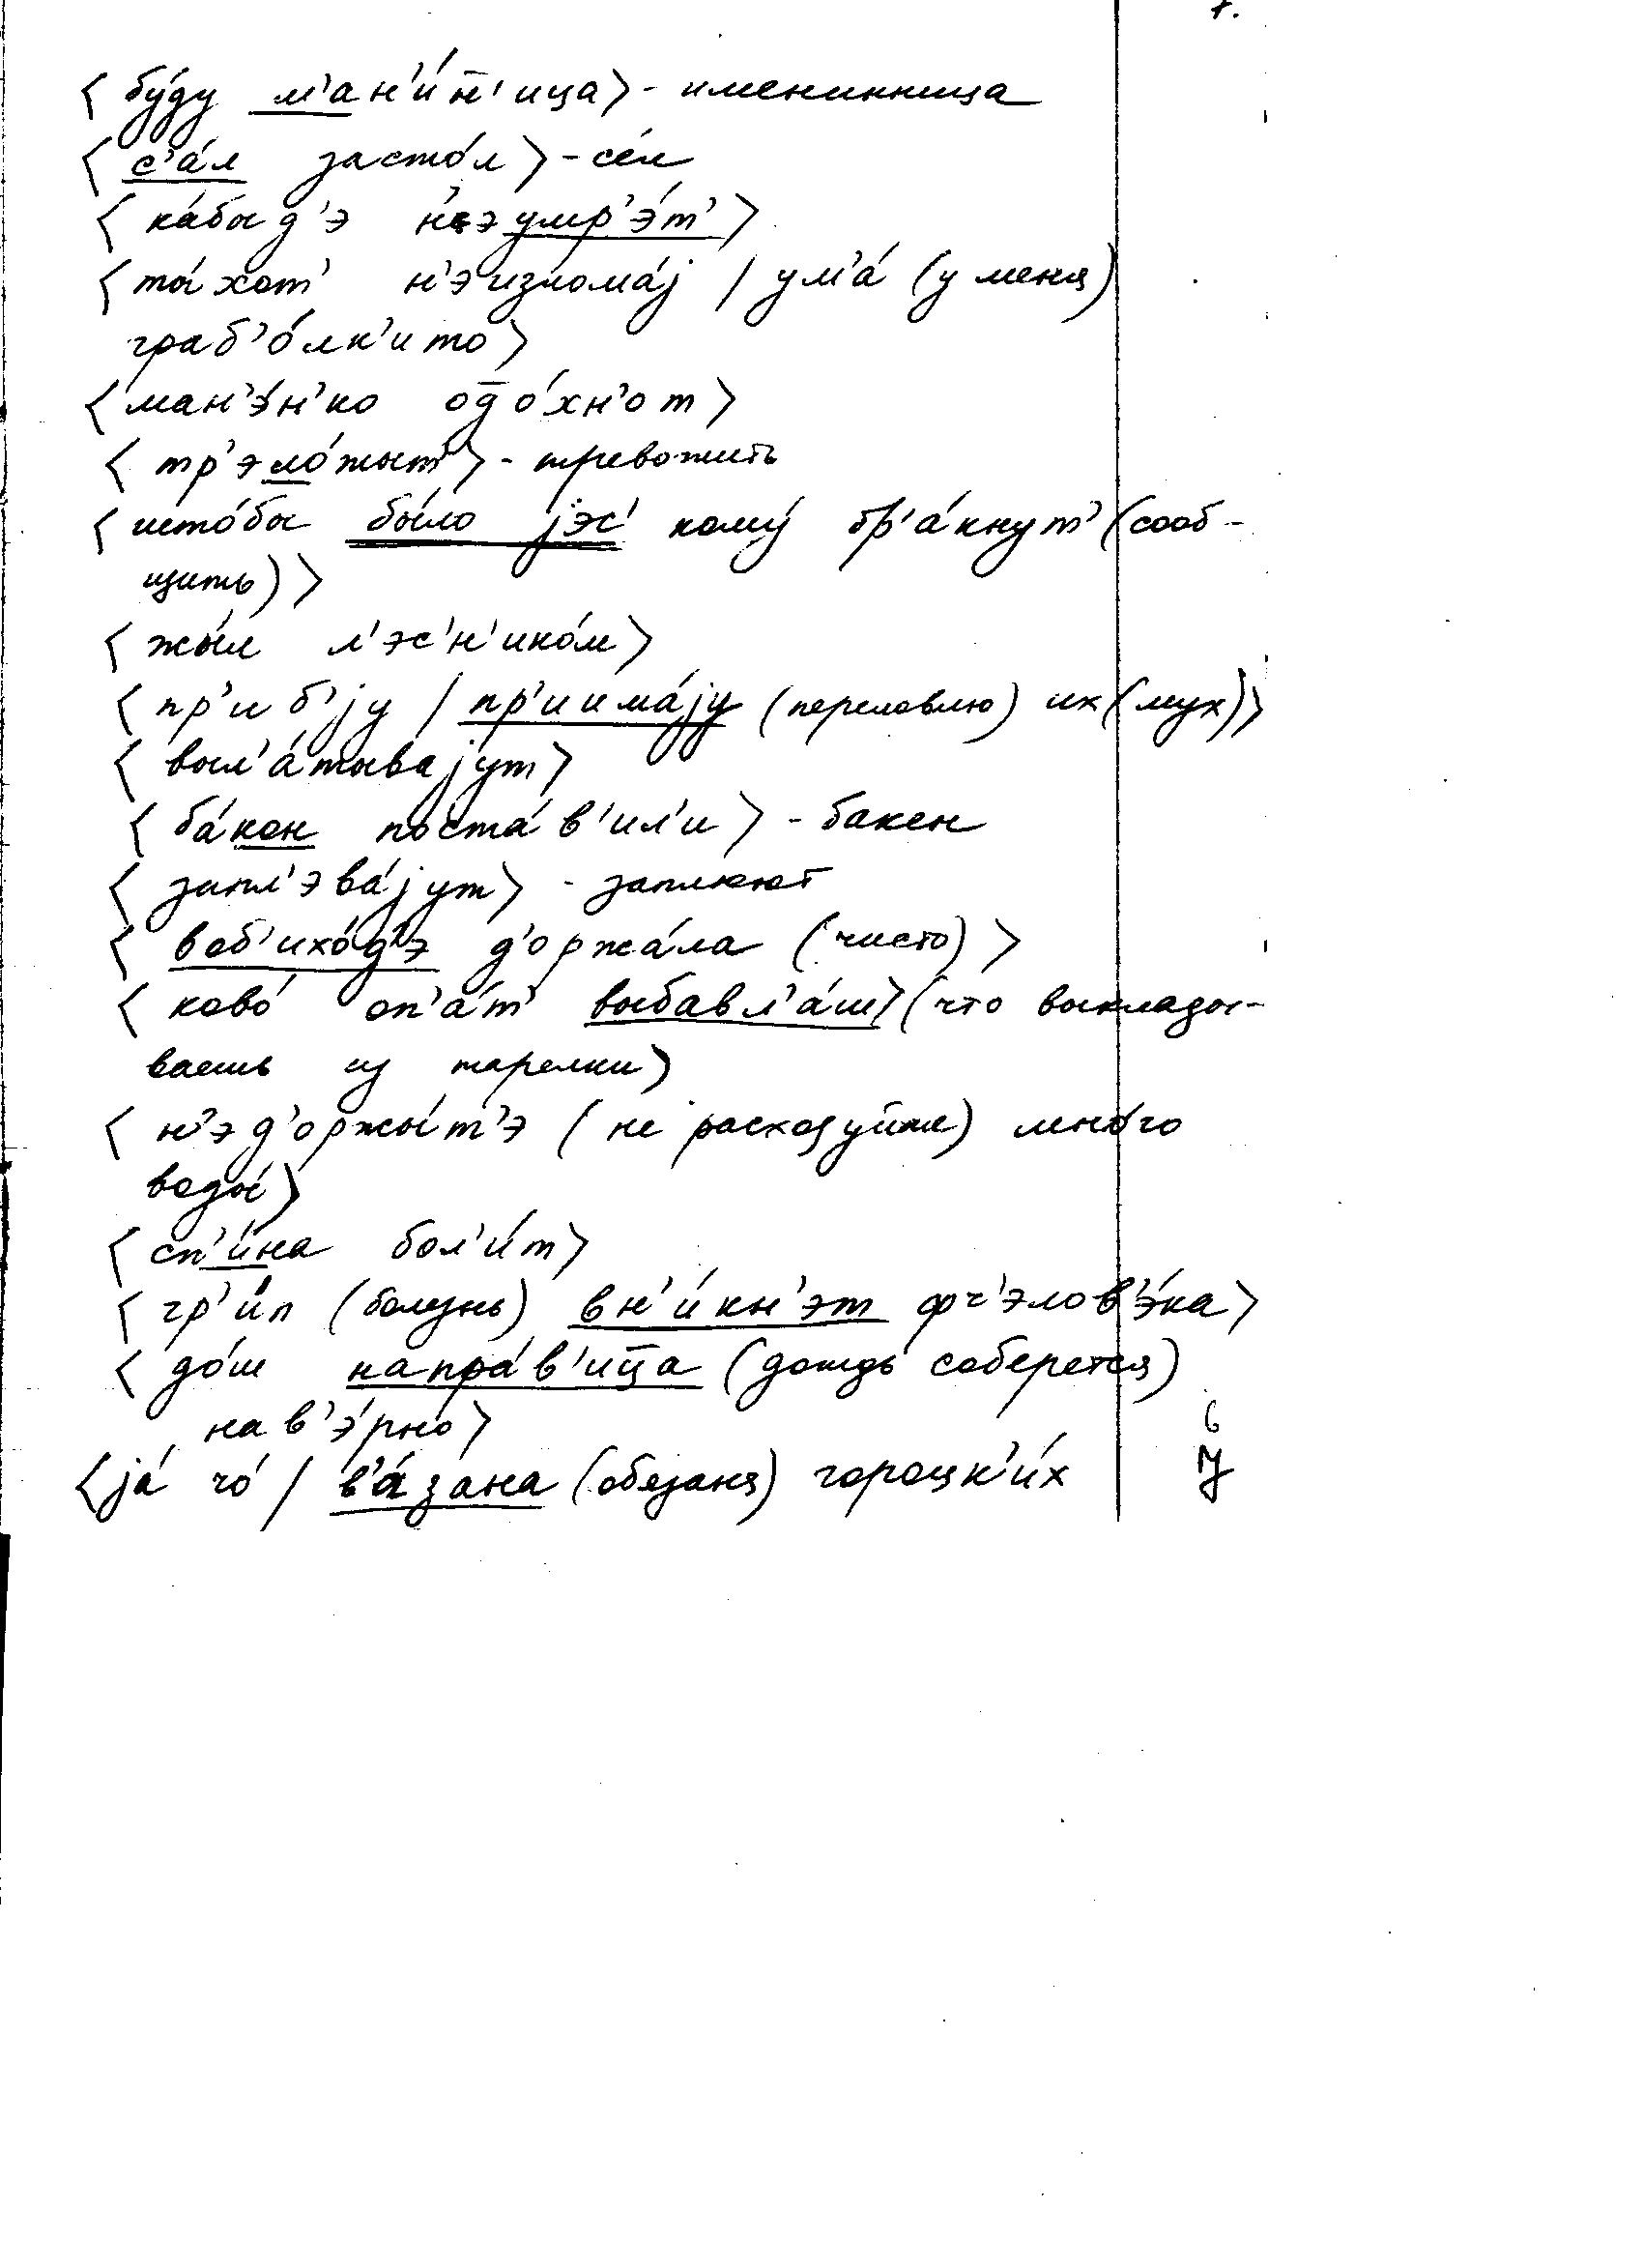 7.
⟨ бу́ду м'ан'и́н̄'ица⟩ - именинница
⟨ с'а́л засто́л ⟩ - се́л
⟨ ка́быд'э н'эумр'э́т' ⟩
⟨ ты́хот' н'эизлома́j / ум'а́ (у меня)
граб'о́лк'ито ⟩
⟨ ман'э́н'ко од̄о́хн'от ⟩
⟨ тр'эло́жыт' ⟩ - тревожить
⟨ што́бы бы́ло jэс' кому́ бр'а́кнут' (сооб-
щить) ⟩
⟨ жы́л л'эс'н'ико́м ⟩
⟨ пр'иб'jу / пр'иима́jу (переловлю) их (мух) ⟩
⟨ выл'а́тываjут ⟩
⟨ ба́кон поста́в'ил'и ⟩ - бакен
⟨ запл'эва́jут ⟩ - заплюют
⟨ воб'ихо́д'э д'оржа́ла (чисто) ⟩
⟨ ково́ оп'а́т' выбавл'а́ш ⟩ (что выклады-
ваешь из тарелки)
⟨ н'эд'оржы́т'э (не расходуйте) мно́го
воды́ ⟩
⟨ сп'и́на бол'и́т ⟩
⟨ гр'и́п (болезнь) вн'и́кн'эт фч'элов'э́ка ⟩
⟨ до́ш напра́в'иц̄а (дождь соберется)
нав'э́рно ⟩
⟨ jа́ чо́ / в'а́зана (обязана) гороцк'и́х
6
7